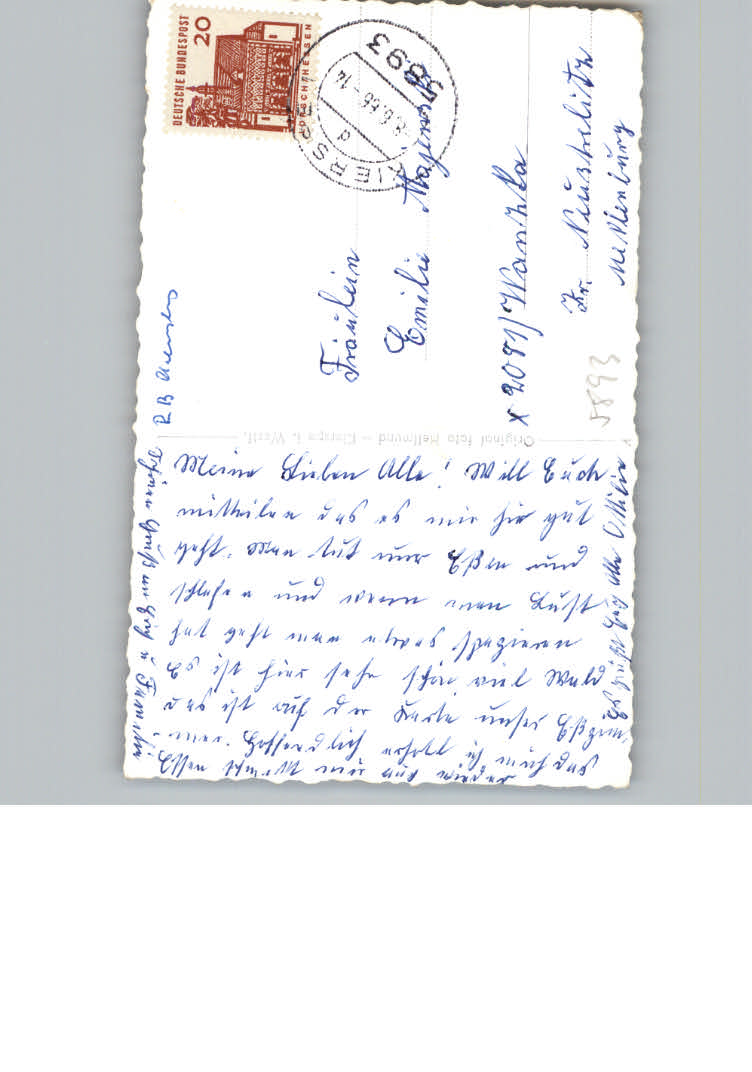 DEUTSCHE BUNDESPOST
20
LORSCH/HESSEN
5893
KIERSPE
-8.6.66-14
d
Fräulein
Emilie
x 2081) Wanzka
Kr. Neustrelitz
Meklenburg
5893
Original Foto Hellmund – Kierspe i. Westf.
Meine Lieben Alle! Will Euch
mitteilen das es mir hir gut
geht. Man tut nur Eßen und
schlafen und wenn man Lust
hat geht man etwas spazieren
Es ist hier sehr schön viel Wald
das ist auf der Karte unser Eßzim-
mer. Hoffendlich erholl ich mich das
Essen schmekt mir auch wieder
Es grüßt Euch alle Ottilie